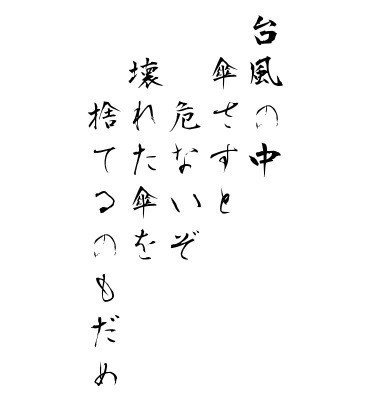 台風の中
傘さすと
危ないぞ
壊れた傘を
捨てるのもだめ